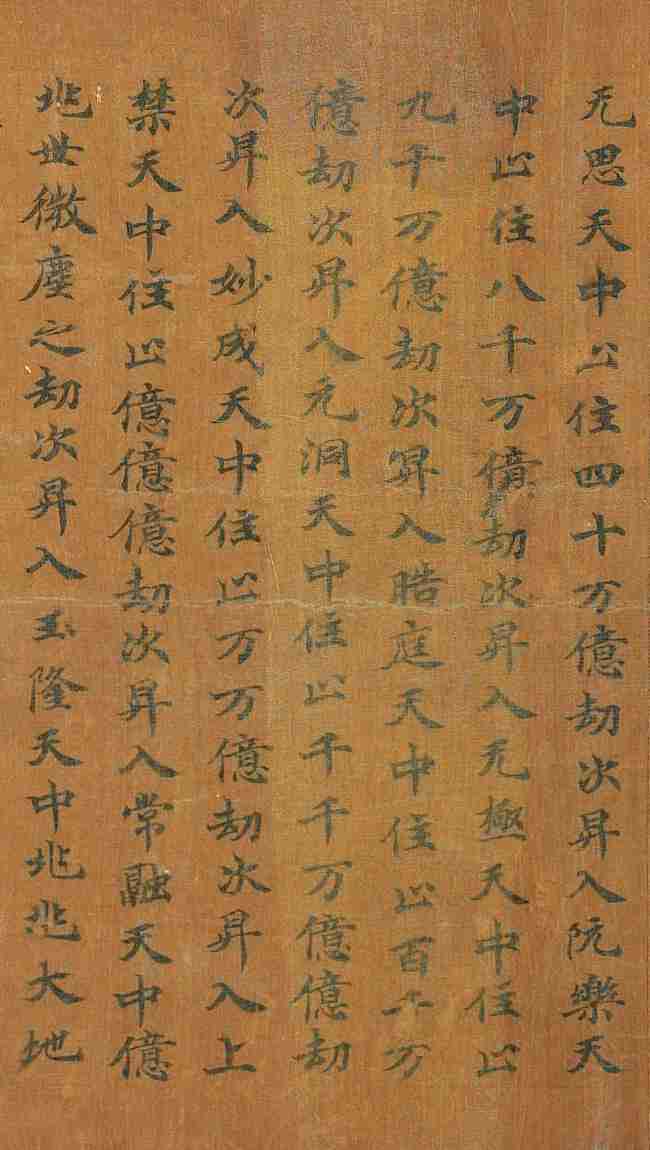 无思天中止住四十万億劫次昇入阮樂天
中止住八千万億劫次昇入无極天中住止
九千万億劫次昇入晧庭天中住止百千万
億劫次昇入元洞天中住止千千万億億劫
次昇入妙成天中住止万万億劫次昇入上
禁天中住止億億億劫次昇入常融天中億
兆世微塵之劫次昇入玉隆天中兆兆大地